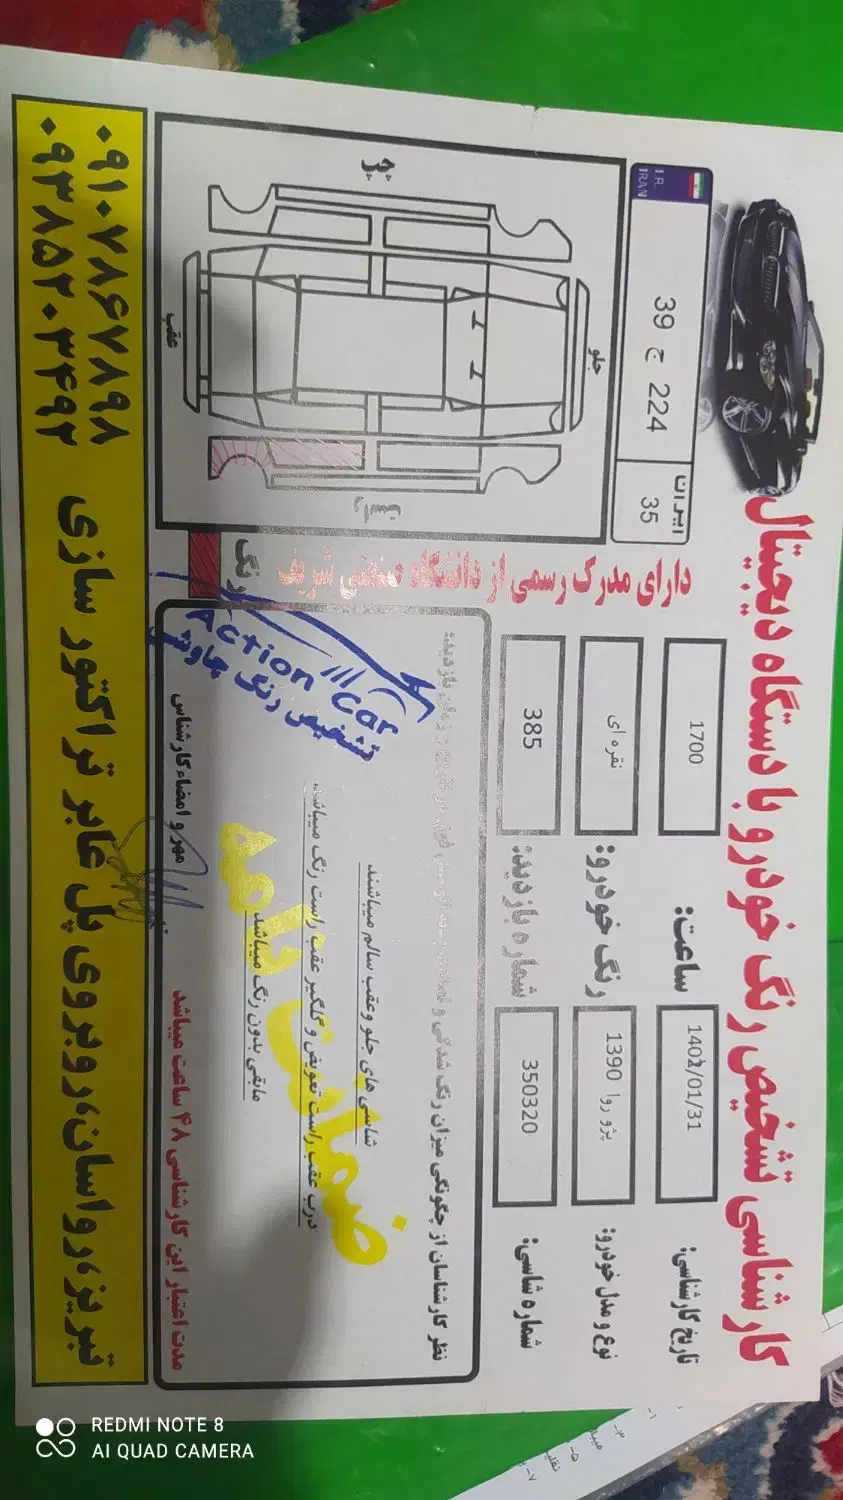 کارشناسی تشخیص رنگ خودرو با دستگاه دیجیتال
تاریخ کارشناسی: 1402/01/31 ساعت: 1700
نوع و مدل خودرو: پژو روا 1390 رنگ خودرو: نقره ای
شماره شاسی: 350320 شماره بازدید: 385
I.R. IRAN
39 ج 224
ایران
35
دارای مدرک رسمی از دانشگاه صنعتی شریف
جلو
عقب
چپ
رنگ
نظر کارشناسان از چگونگی میزان رنگ شدگی و
شاسی های جلو وعقب سالم میباشند
درب عقب راست تعویض و گلگیر عقب راست رنگ میباشد
مابقی بدون رنگ میباشد
ضمانت نامه
Action car
تشخیص رنگ چاوشی
مدت اعتبار این کارشناسی ۴۸ ساعت میباشد
مهر و امضاء کارشناس
تبریز، رواسان، روبروی پل عابر تراکتور سازی
۰۹۱۰۷۸۶۷۸۹۸
۰۹۳۸۵۲۰۳۴۹۲
REDMI NOTE 8
AI QUAD CAMERA